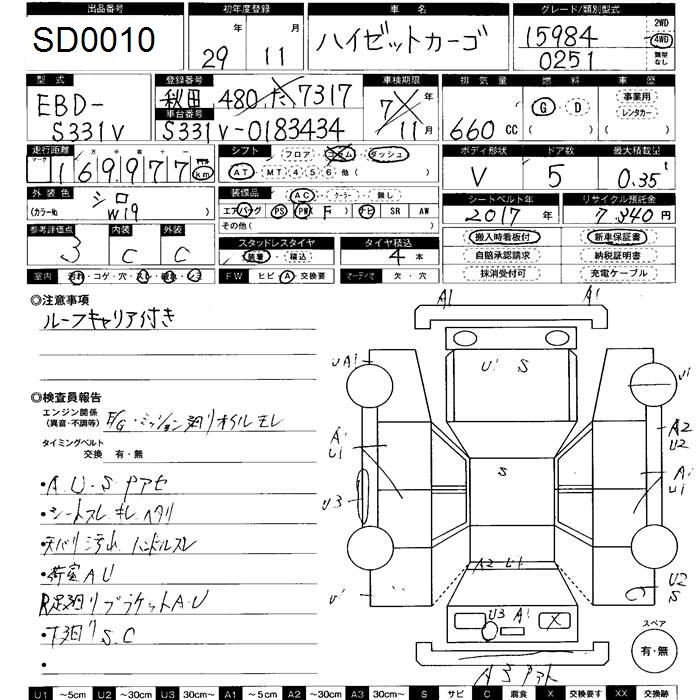 出品番号 初年度登録 車名 グレード/類別型式
SD0010 29年 11月 ハイゼットカーゴ 15984 0251 2WD 4WD 類型なし
型式 登録番号 車検期限 排気量 燃料 車歴
EBD-S331V 秋田 480 た 7317 7年 11月 660cc G・D 事業用 レンタカー ( )
車台番号
S331V-0183434
走行距離 シフト ボディ形状 ドア数 最大積載量
マーク 十 万 千 百 十 一
169977 km AT・MT 4 5 6 他( ) フロア・コラム・ダッシュ V 5 0.35t
外装色 装備品 シートベルト年 リサイクル預託金
シロ
(カラーNo W19 AC・クーラー・無し 2017年 7,340円
エアバッグ PS PW F ナビ SR AW
その他( )
参考評価点 内装 外装 スタッドレスタイヤ タイヤ積込
3 C C 装着・積込 4本
搬入時看板付 新車保証書
自賠承認請求 納税証明書
抹消受付可 充電ケーブル
室内 汚れ・コゲ・穴・スレ・破れ・シミ FW ヒビ・A・交換要 オーディオ 欠・穴
◎注意事項
ルーフキャリア付き
◎検査員報告
エンジン関係
(異音・不調等) E/G・ミッション廻りオイルモレ
タイミングベルト
交換 有・無
・A.U・Sアセ
・シートスレ キレ ヘタリ
・天バリ汚れ ハンドルスレ
・荷室AU
R足廻りブラケットA・U
・下廻りS.C
・
A1 A1
U1 S
UA1 U1
A1 U1 A2 U2
S A1 U1
U3
A2 U1
U1 U2 S
U3 A1 X
スペア
有・無
U1 ～5cm U2 ～30cm U3 30cm～ A1 ～5cm A2 ～30cm A3 30cm～ S サビ C 腐食 X 交換要す XX 交換跡